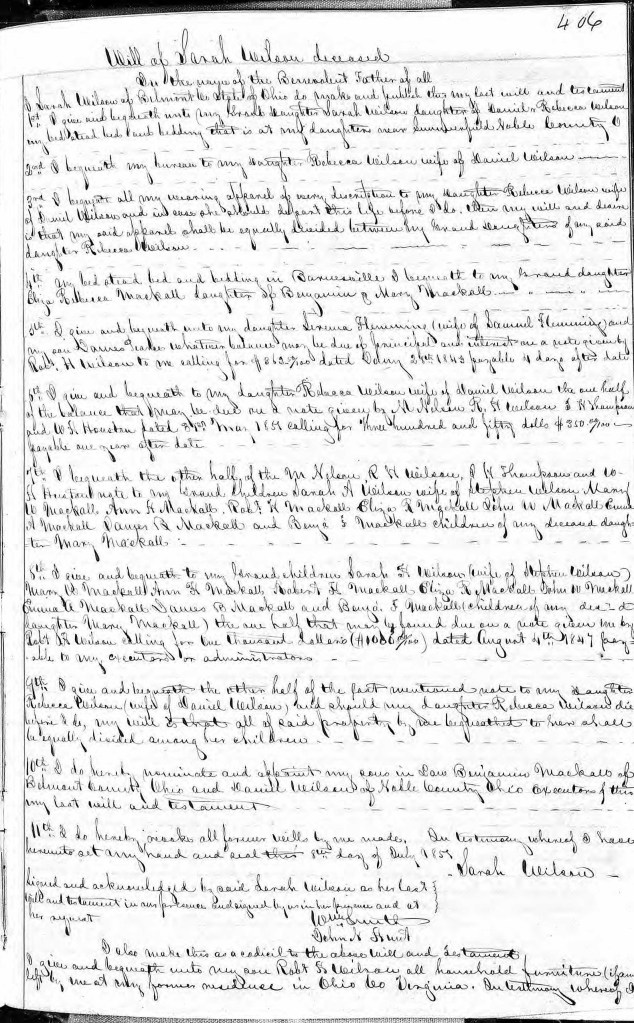 406
Will of Sarah Wilson deceased
In the name of the Benevolent Father of all
I Sarah Wilson of Belmont Co State of Ohio do make and publish this my last will and testament
1st I give and bequeath unto my Grand Daughter Sarah Wilson daughter of Daniel & Rebecca Wilson
my bed stead bed and bedding that is at my daughters near Summerfield Noble County O
2nd I bequeath my bureau to my daughter Rebecca Wilson wife of Daniel Wilson
3rd I bequeath all my wearing apparel of every discription to my daughter Rebecca Wilson wife
of Daniel Wilson and in case she should depart this life before I do, then my will and desire
is that my said apparel shall be equally divided between my Grand Daughters of my said
daughter Rebecca Wilson
4th My bed stead bed and bedding in Barnesville I bequeath to my Grand daughter
Eliza Rebecca Mackall daughter of Benjamin & Mary Mackall
5th I give and bequeath unto my daughter Serena Flemming (wife of Samuel Flemming) and
my son James whatever balance may be due of principal and interest on a note given by
Robt. H Wilson to me calling for $862 00/100 dated 29th 1843 payable 4 days after date
6th I give and bequeath to my daughter Rebecca Wilson wife of Daniel Wilson the one half
of the balance that may be due on a note given by M Nelson R. H Wilson & H Thompson
and W. H Houston dated Mar 1851 calling for Three hundred and fifty dolls $350 00/100
payable one year after date
7th I bequeath the other half of the M Nelson, R H Wilson, H Thompson and W.
H Houston note to my Grand Children Sarah A Wilson wife of Stephen Wilson Mary
W Mackall, Ann H Mackall, Robt. H Mackall Eliza R Mackall John W Mackall Emma
A Mackall James B Mackall and Benj. F Mackall children of my deceased daugh
ter Mary Mackall
8th I give and bequeath to my Grand children Sarah H Wilson (wife of Stephen Wilson)
Mary W Mackall Ann H Mackall Robert H Mackall Eliza R Mackall John W Mackall
Emma A Mackall James B Mackall and Benj. F Mackall (children of my dec-d
daughter Mary Mackall) the one half that may be found due on a note given me by
Robt H Wilson calling for One Thousand Dollars ($1000 00/100) dated August 4th 1847 pay-
able to my executors or administrators
9th I give and bequeath the other half of the last mentioned note to my daughter
Rebecca Wilson (wife of Daniel Wilson) and should my daughter Rebecca Wilson die
before I do, my will is that all of said property by me bequeathed to her shall
be equally divided among her children
10th I do hereby nominate and appoint my sons in Law Benjamin Mackall of
Belmont County Ohio and Daniel Wilson of Noble County Ohio executors of this
my last will and testament
11th I do hereby revoke all former wills by me made. In testimony whereof I have
hereunto set my hand and seal this 8th day of July 1857
Sarah Wilson
Signed and acknowledged by said Sarah Wilson as her last
will and testament in our presence and signed by us in her presence and at
her request
Wm Smith
John H
I also make this as a codicil to the above will and testament
I give and bequeath unto my son Robt H Wilson all household furniture (if any
left by me at my former residence in Ohio Co Virginia. In testimony whereof I